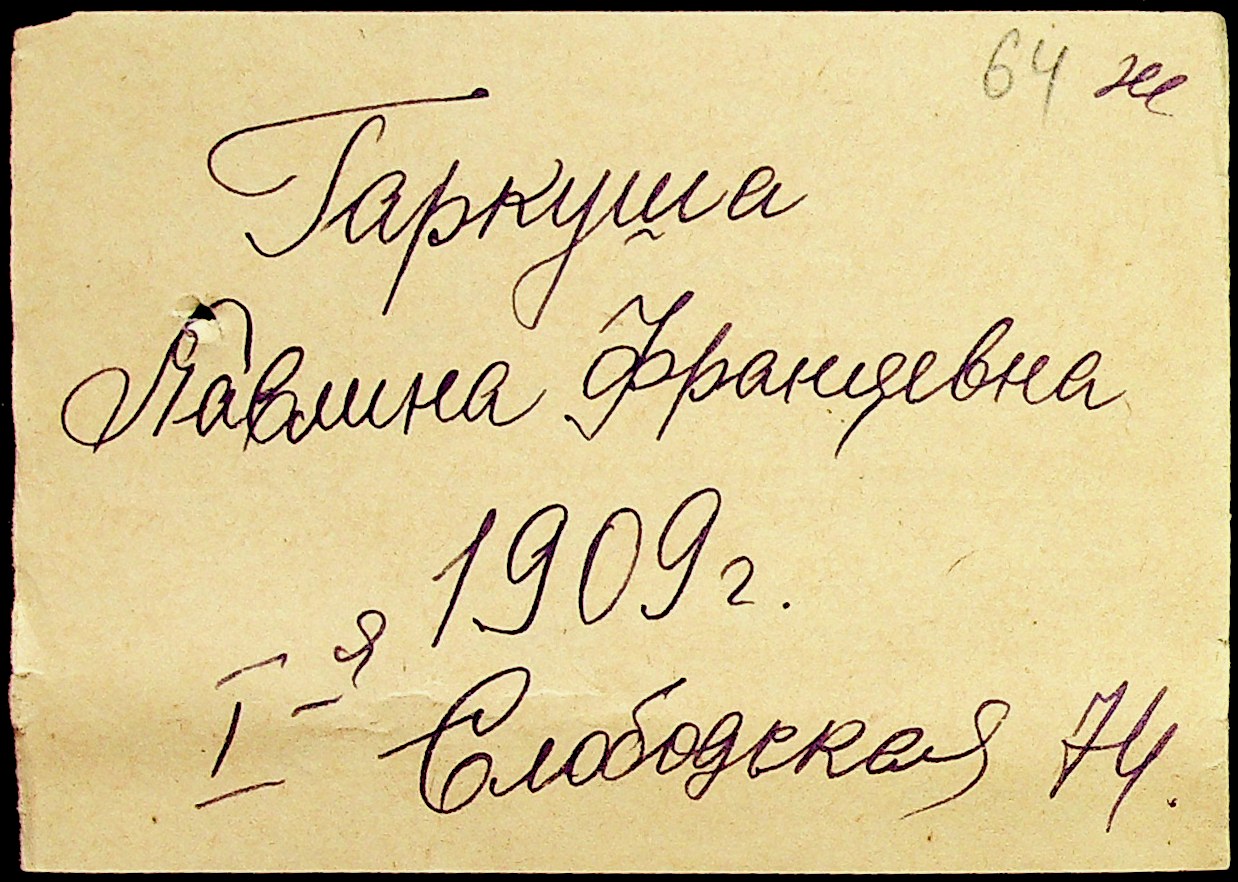 64 ж
Гаркуша
Павлина Францевна
1909 г.
I-я Слободская 74.